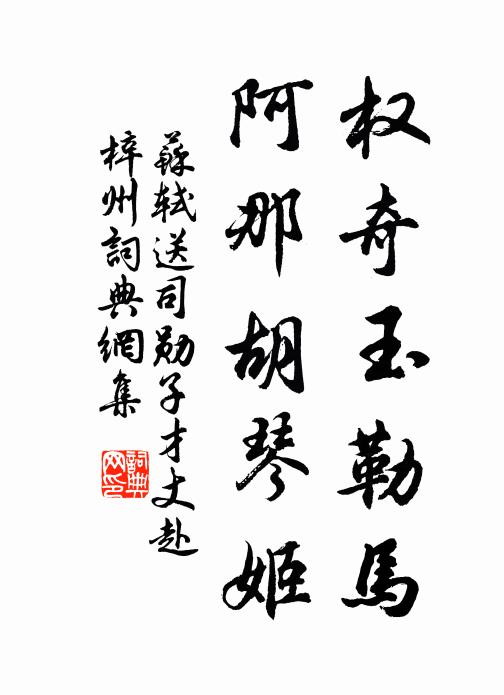 权奇玉勒馬
阿那胡琴姬
蘇軾送司勛子才丈赴
梓州詞典網集
詞典网印